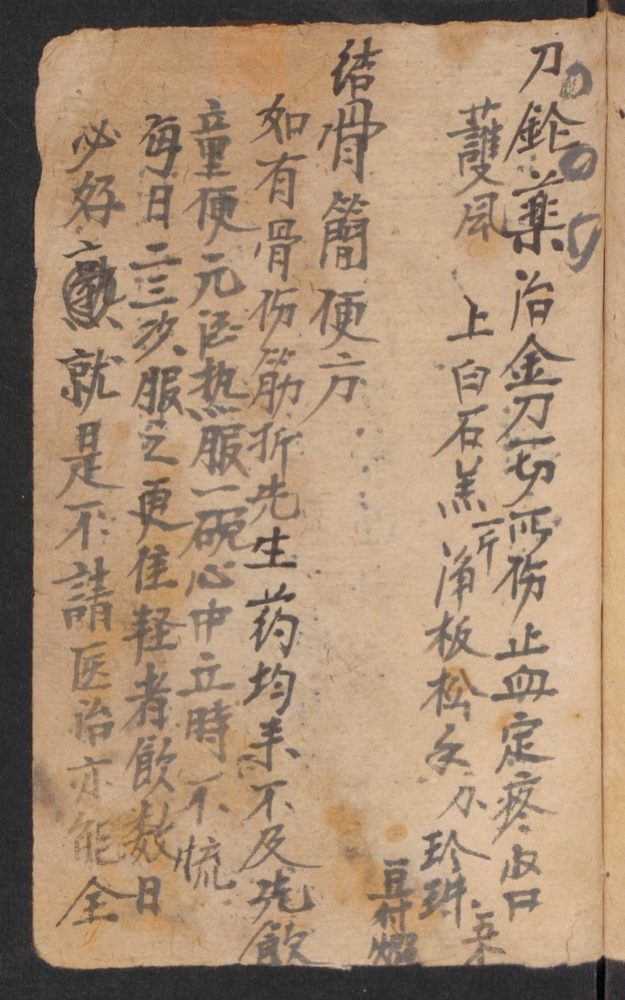 刀鎗藥治金刀一切所伤止血定疼收口
護風 上白石羔一斤 净板松香 珍珠
豆付煅
结骨簡便方
如有骨伤筋折先生药均未不及先飲
童便元酒热服一碗心中立時不慌
每日二三次服之更佳轻者飲数日
必好就是不請医治亦能全